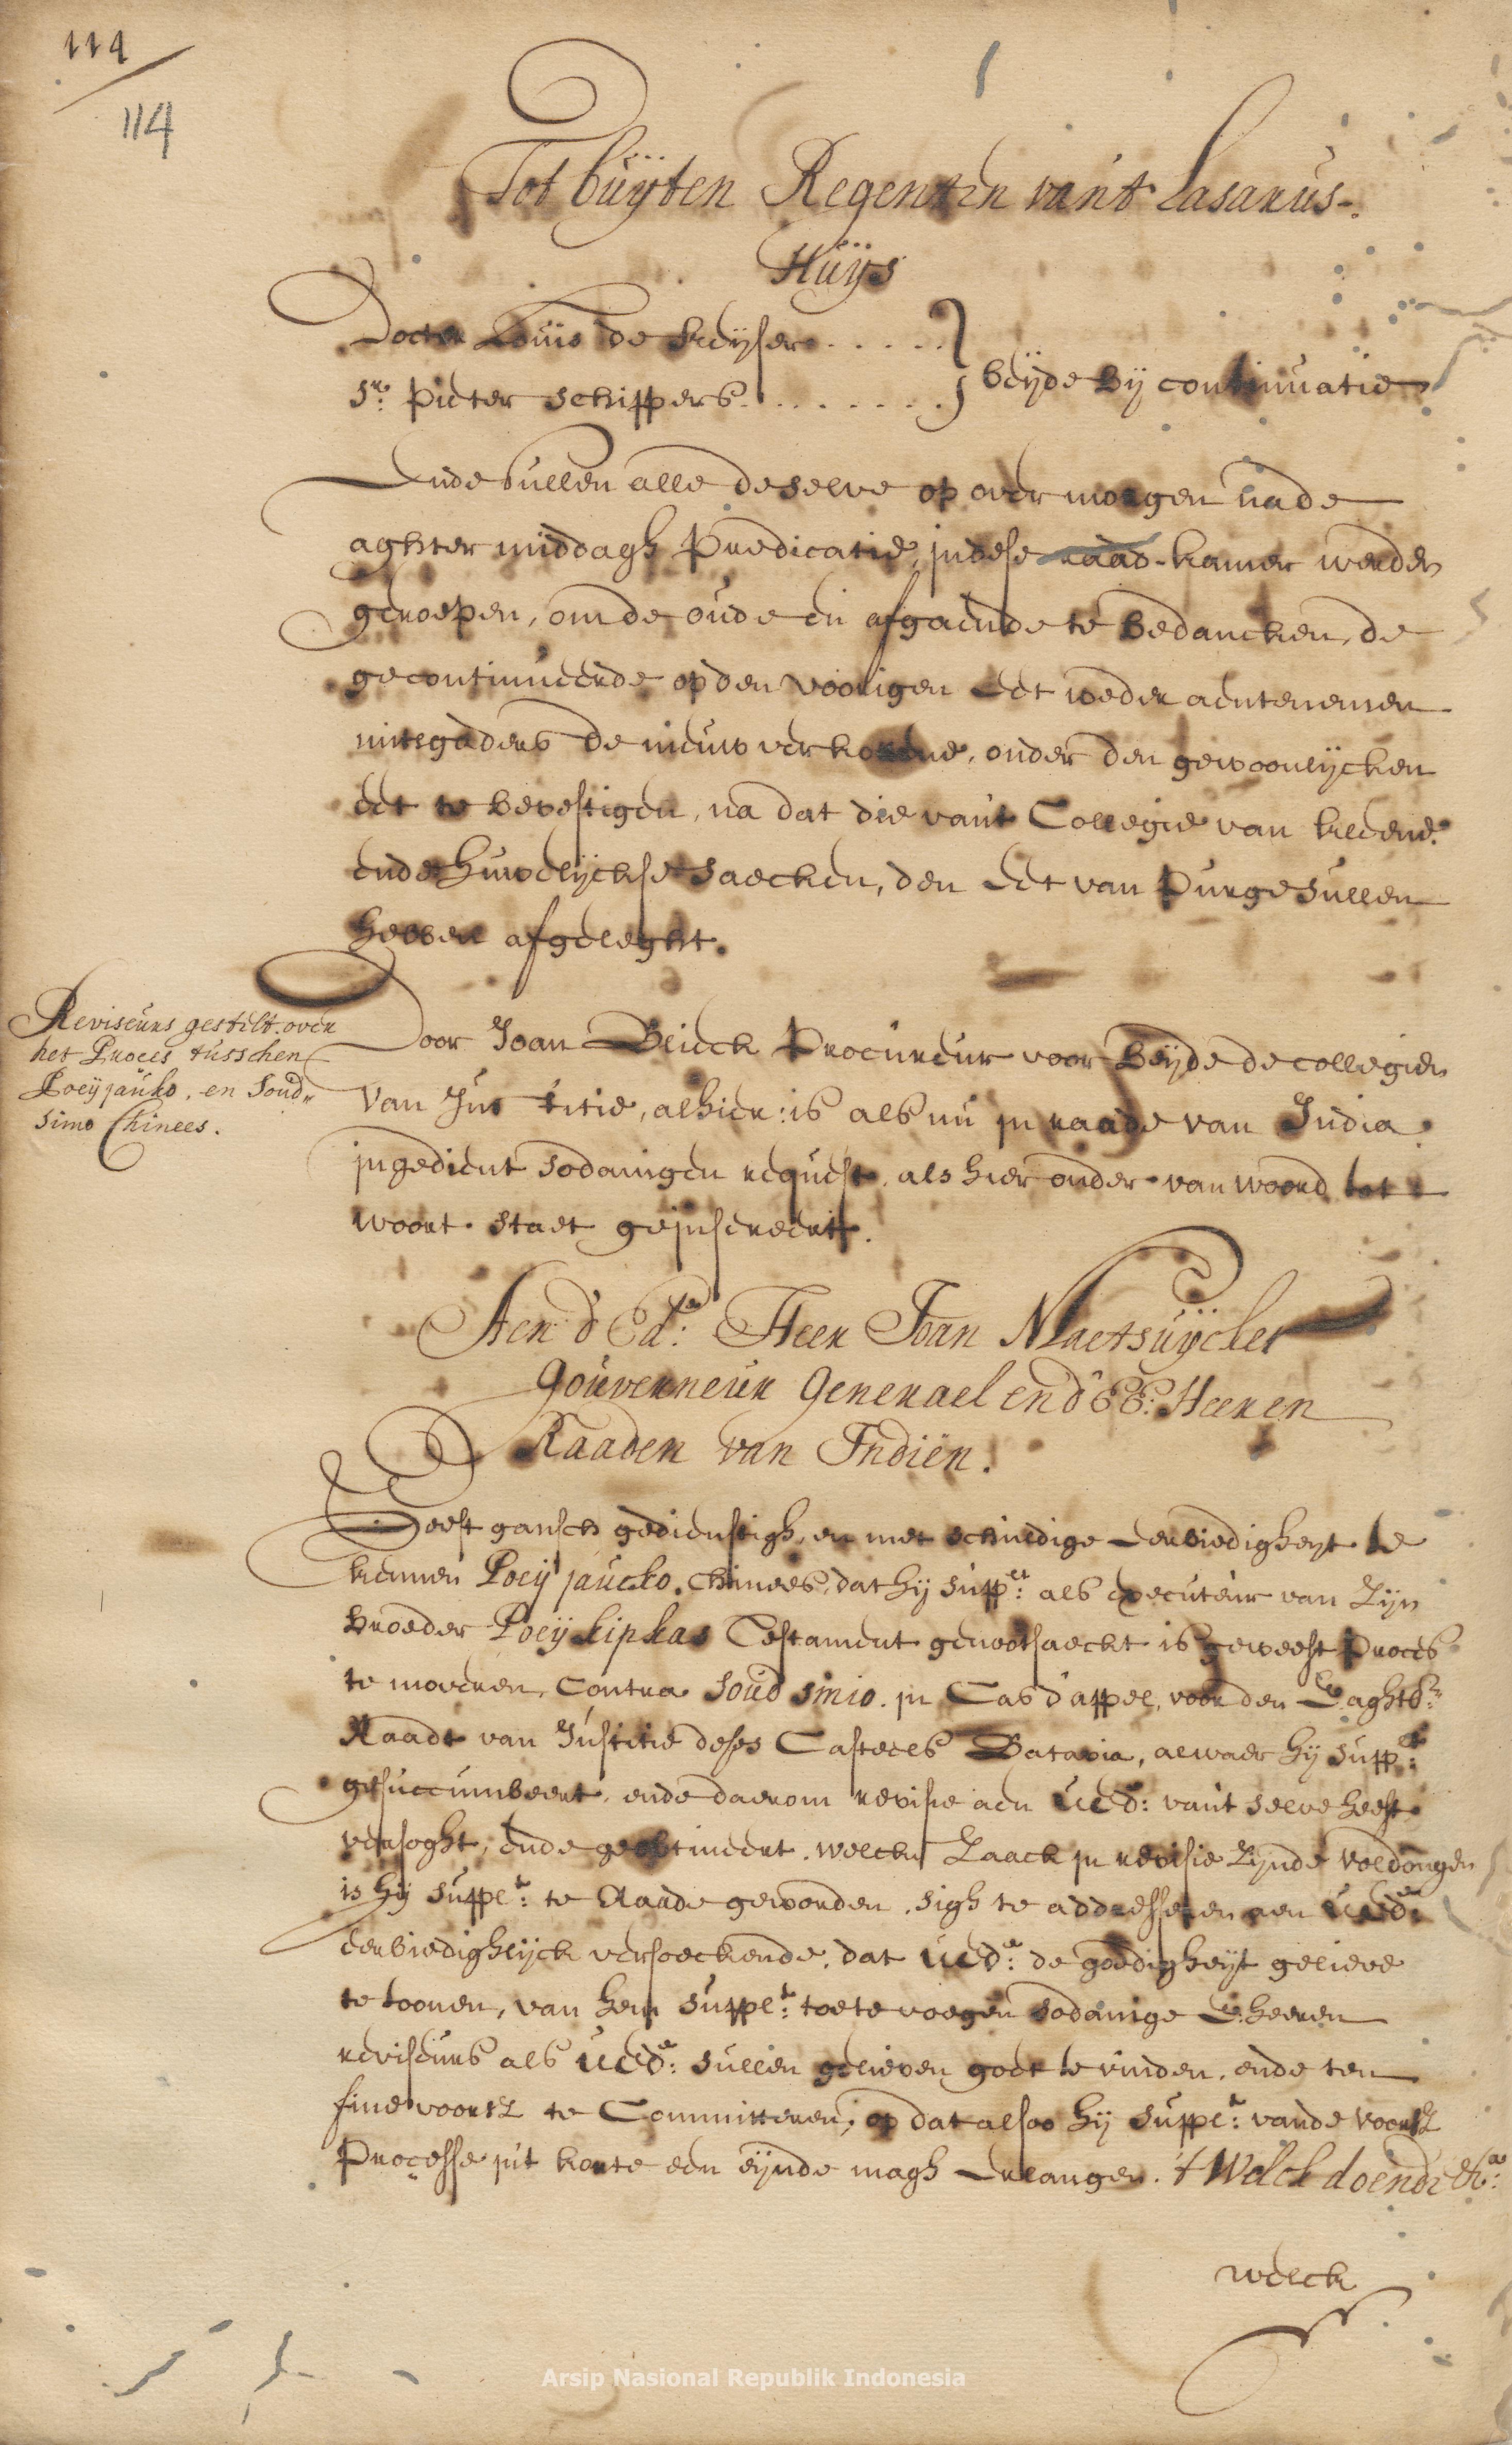 114
114
Tot buÿten Regenten vant Lasarus-
Huÿs
Doctor Louis de Keijser . . . . .
Sr: Pieter Schippers . . . . . . . . } beijde bij continuatie
Ende sullen alle deselve op over morgen nade
aghter middagh Predicatie, in dese raad-kamer werden
geroepen, om de oude en afgaende te bedancken, de
gecontinueerde op den voorigen Eet weder aentenemen
mitsgaders de nieuw verkorene, onder den gewoonlijcken
eet te bevestigen, na dat die vant Collegie van kleene
ende Huwelijckse saecken, den Eet van Purge sullen
hebben afgeleght.
Reviseurs gestelt over
het Proces tusschen
Poeÿjaúko, en Soud"
simo Chinees.
Door Joan Bleick Procureur voor beijde de collegien
van Justitie, alhier: is als nu in raade van India
ingedient sodanigen request, als hier onder van woord tot
woort staet geinsereert.
Aen d' Ede: Heer Joan Maetsuÿcker
Gouverneur Generael en d' EE: Heeren
Raaden van Indiën.
Geeft gansch gedienstigh, en met schuldige Eerbiedigheyt te
kennen Poeÿ jaucko, Chinees, dat hij supplt: als executeur van Zijn
broeder Poeÿ kipkas Testament genootsaeckt is geweest Proces
te moveren, Contra Soud simo. in Cas d'appel, voor den E. aghtbr:
Raadt van Justitie deses Casteels Batavia, alwaer hij supplt:
gesuccumbeert, ende daerom revisie aen UEd: van't selve heeft
versoght, ende geobtineert, welcke Zaack in revisie Zijnde voldongen
is hij supplt: te Raade geworden, sigh te addresseren aen UEde:
eerbiedighlijck versoeckende, dat UEde: de goedigheijt gelieve
te toonen, van hem supplt: toe te voegen sodanige E. heeren
reviseurs als UEde: sullen gelieven goet te vinden, ende ten
fine voorsz te Committeren, op dat alsoo hij supplt: vande voorsz
Processe uit korte een eijnde magh Erlangen. 't Welck doende etca:
welck
Arsip Nasional Republik Indonesia